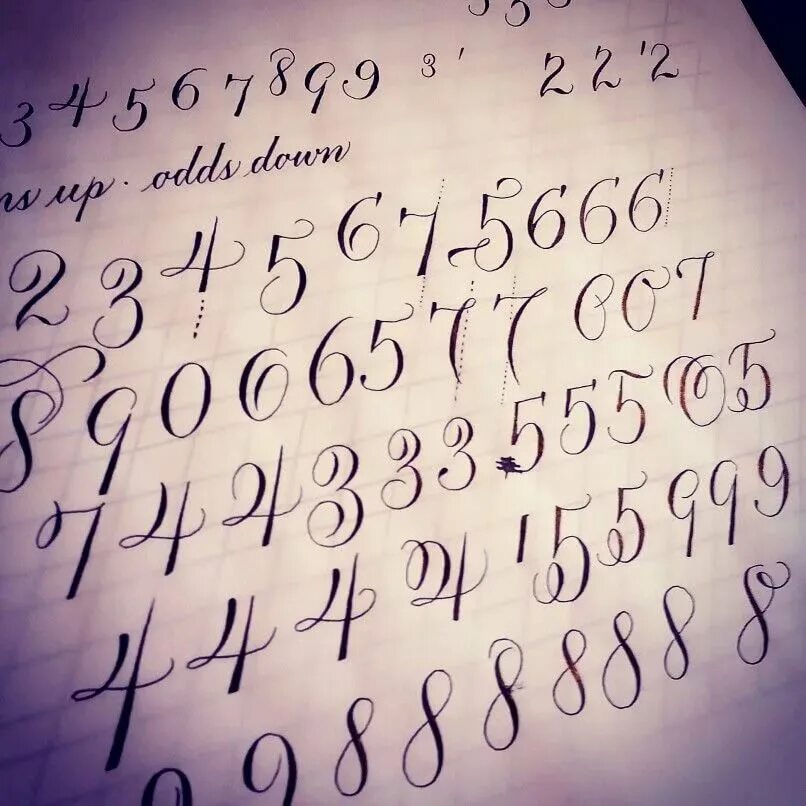 3 4 5 6 7 8 9 9 3 ' 2 2 '2
up. odds down
2 3 4 5 6 7 5 6 6 6
8 9 0 6 6 5 7 7 6 0 7
7 4 4 3 3 3 5 5 5 0 5
4 4 4 4 ' 5 5 9 9 9
9 8 8 8 8 8 8 8